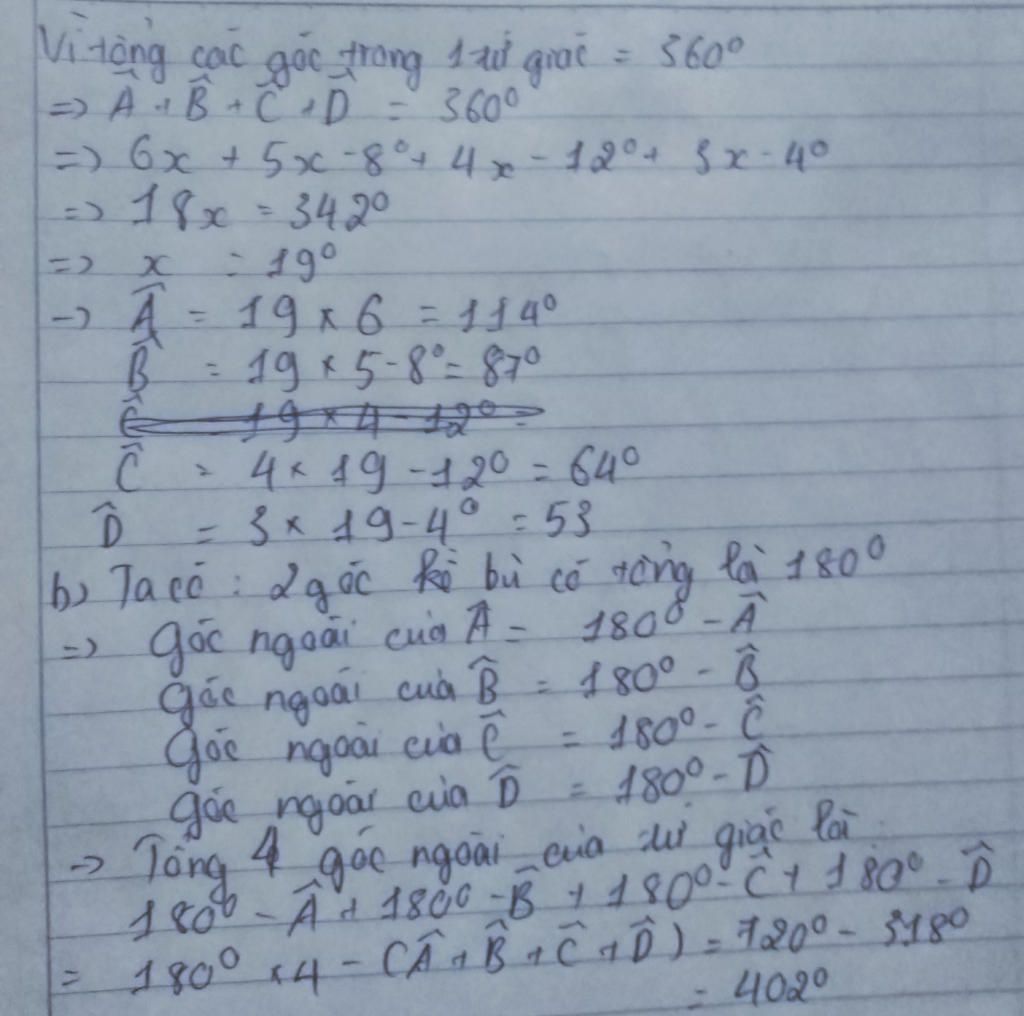 Vì tổng các góc trong 1 tứ giác = 360°
=> Â + B̂ + Ĉ + D̂ = 360°
=> 6x + 5x - 8° + 4x - 12° + 3x - 4°
=> 18x = 342°
=> x = 19°
-> Â = 19 × 6 = 114°
B̂ = 19 × 5 - 8° = 87°
Ĉ 19 × 4 - 12° =
Ĉ = 4 × 19 - 12° = 64°
D̂ = 3 × 19 - 4° = 53
b) Ta có : 2 góc kề bù có tổng là 180°
=> Góc ngoài của Â = 180° - Â
Góc ngoài của B̂ = 180° - B̂
Góc ngoài của Ĉ = 180° - Ĉ
Góc ngoài của D̂ = 180° - D̂
-> Tổng 4 góc ngoài của tứ giác là
180° - Â + 180° - B̂ + 180° - Ĉ + 180° - D̂
= 180° × 4 - (Â + B̂ + Ĉ + D̂) = 720° - 318°
= 402°